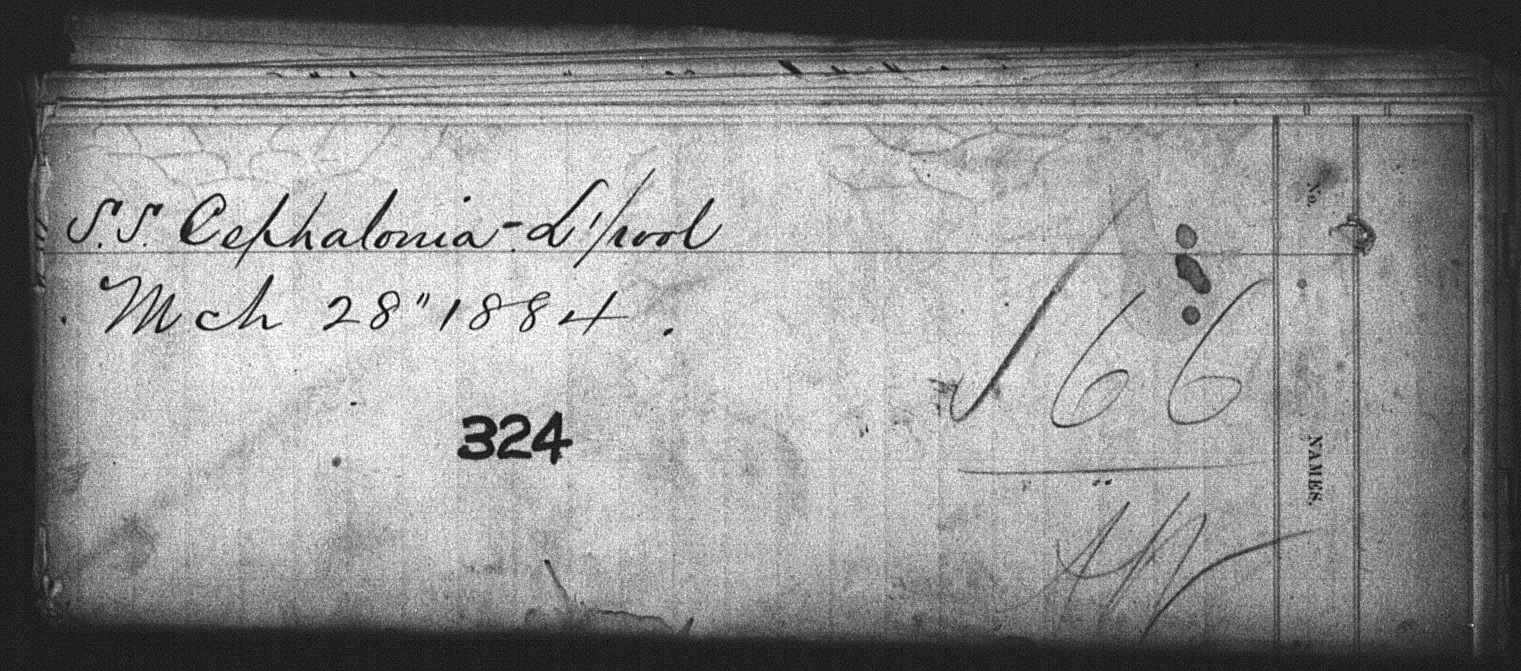 S.S. Cephalonia - L'pool
Mch 28" 1884.
324
66
No.
NAMES.